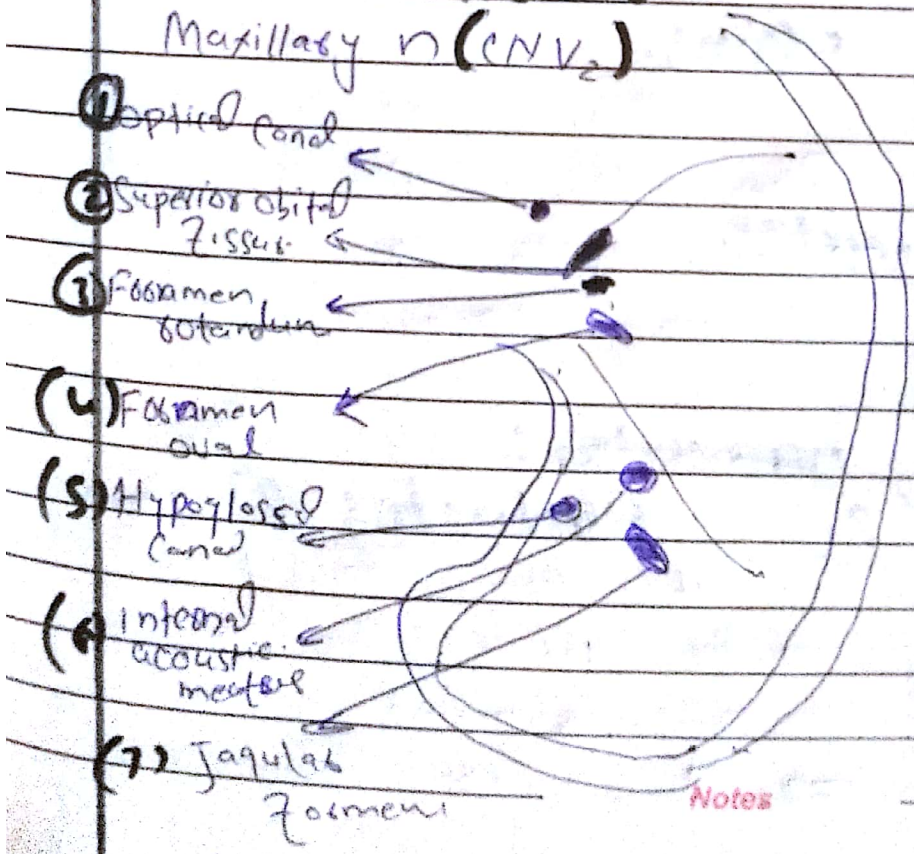 Maxillary n (CNV₂)
① optical Canal
② Superior obital
Fissus
③ Fooramen
rotandum
(4) Fooramen
oval
(5) Hypoglossal
Canal
(6) internal
acoustic
meatus
(7) Jagular
Formeni
Notes